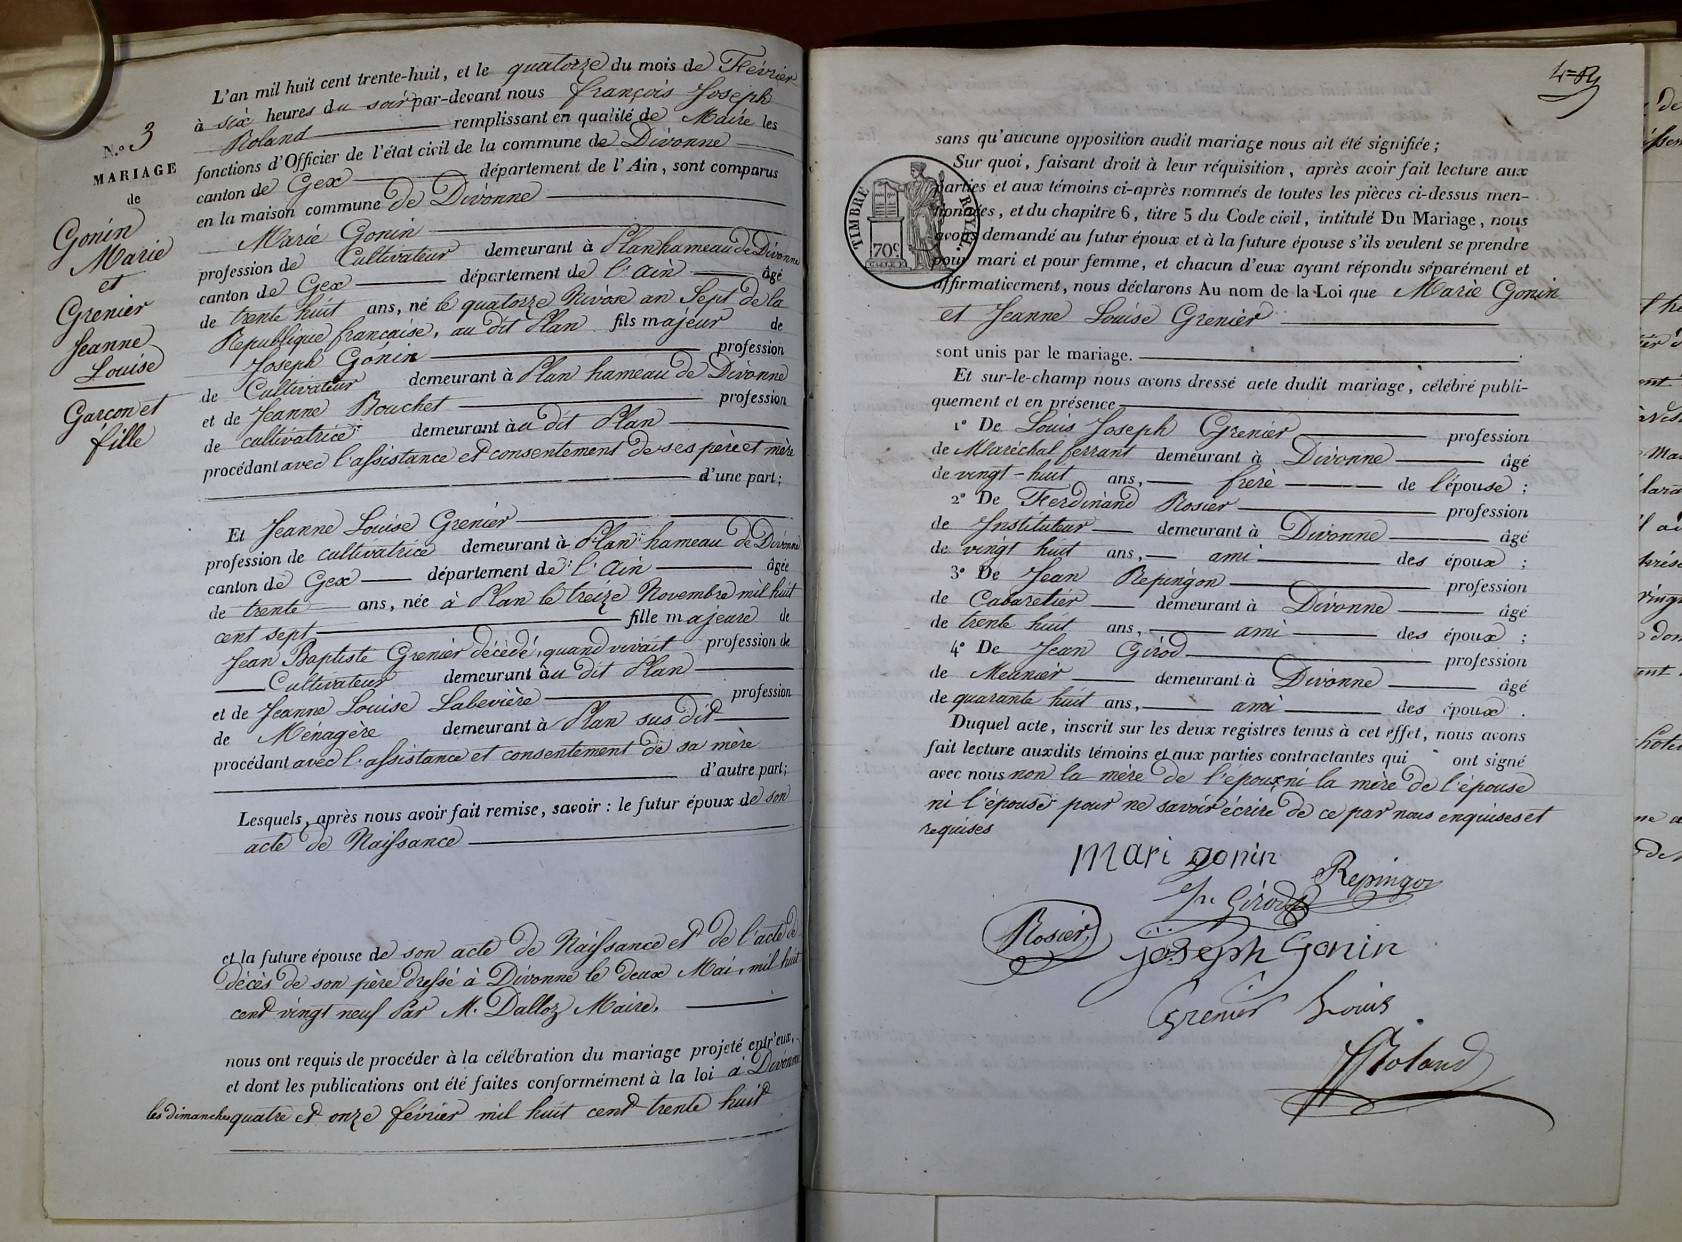 N.º 3
MARIAGE
de
Gonin
Marie
et
Grenier
Jeanne
Louise
Garçon et
fille
L'an mil huit cent trente-huit, et le quatorze du mois de Février
à six heures du soir par-devant nous François Joseph
Roland remplissant en qualité de Maire les
fonctions d'Officier de l'état civil de la commune de Divonne
canton de Gex département de l'Ain, sont comparus
en la maison commune de Divonne
Marie Gonin
profession de Cultivateur demeurant à Plan hameau de Divonne
canton de Gex département de l'Ain âgé
de trente huit ans, né le quatorze Nivose an Sept de la
République française, au dit Plan fils majeur de
Joseph Gonin profession
de Cultivateur demeurant à Plan hameau de Divonne
et de Jeanne Bouchet profession
de cultivatrice demeurant à au dit Plan
procédant avec l'assistance et consentement de ses père et mère
d'une part;
Et Jeanne Louise Grenier
profession de cultivatrice demeurant à Plan hameau de Divonne
canton de Gex département de l'Ain âgée
de trente ans, née à Plan le treize Novembre mil huit
cent sept fille majeure de
Jean Baptiste Grenier décédé, quand vivait profession de
Cultivateur demeurant au dit Plan
et de Jeanne Louise Labevière profession
de Ménagère demeurant à Plan sus dit
procédant avec l'assistance et consentement de sa mère
d'autre part;
Lesquels, après nous avoir fait remise, savoir : le futur époux de son
acte de Naissance
et la future épouse de son acte de Naissance et de l'acte de
décès de son père dressé à Divonne le deux Mai, mil huit
cent vingt neuf par M. Dalloz Maire,
nous ont requis de procéder à la célébration du mariage projeté entr'eux,
et dont les publications ont été faites conformément à la loi à Divonne
les dimanches quatre et onze février mil huit cent trente huit
TIMBRE ROYAL
70c
sans qu'aucune opposition audit mariage nous ait été signifiée;
Sur quoi, faisant droit à leur réquisition, après avoir fait lecture aux
parties et aux témoins ci-après nommés de toutes les pièces ci-dessus men-
tionnées, et du chapitre 6, titre 5 du Code civil, intitulé Du Mariage, nous
avons demandé au futur époux et à la future épouse s'ils veulent se prendre
pour mari et pour femme, et chacun d'eux ayant répondu séparément et
affirmativement, nous déclarons Au nom de la Loi que Marie Gonin
et Jeanne Louise Grenier
sont unis par le mariage.
Et sur-le-champ nous avons dressé acte dudit mariage, célébré publi-
quement et en présence
1º De Louis Joseph Grenier profession
de Maréchal ferrant demeurant à Divonne âgé
de vingt-huit ans, frère de l'épouse;
2º De Ferdinand Rosier profession
de Instituteur demeurant à Divonne âgé
de vingt huit ans, ami des époux;
3º De Jean Repingon profession
de Cabaretier demeurant à Divonne âgé
de trente huit ans, ami des époux;
4º De Jean Girod profession
de Meunier demeurant à Divonne âgé
de quarante huit ans, ami des époux.
Duquel acte, inscrit sur les deux registres tenus à cet effet, nous avons
fait lecture auxdits témoins et aux parties contractantes qui ont signé
avec nous non la mère de l'époux, ni la mère de l'épouse
ni l'épouse pour ne savoir écrire de ce par nous enquises et
requises
Mari gonin
Repingon
Jn Girod
Rosier
joseph Gonin
Grenier Louis
Roland